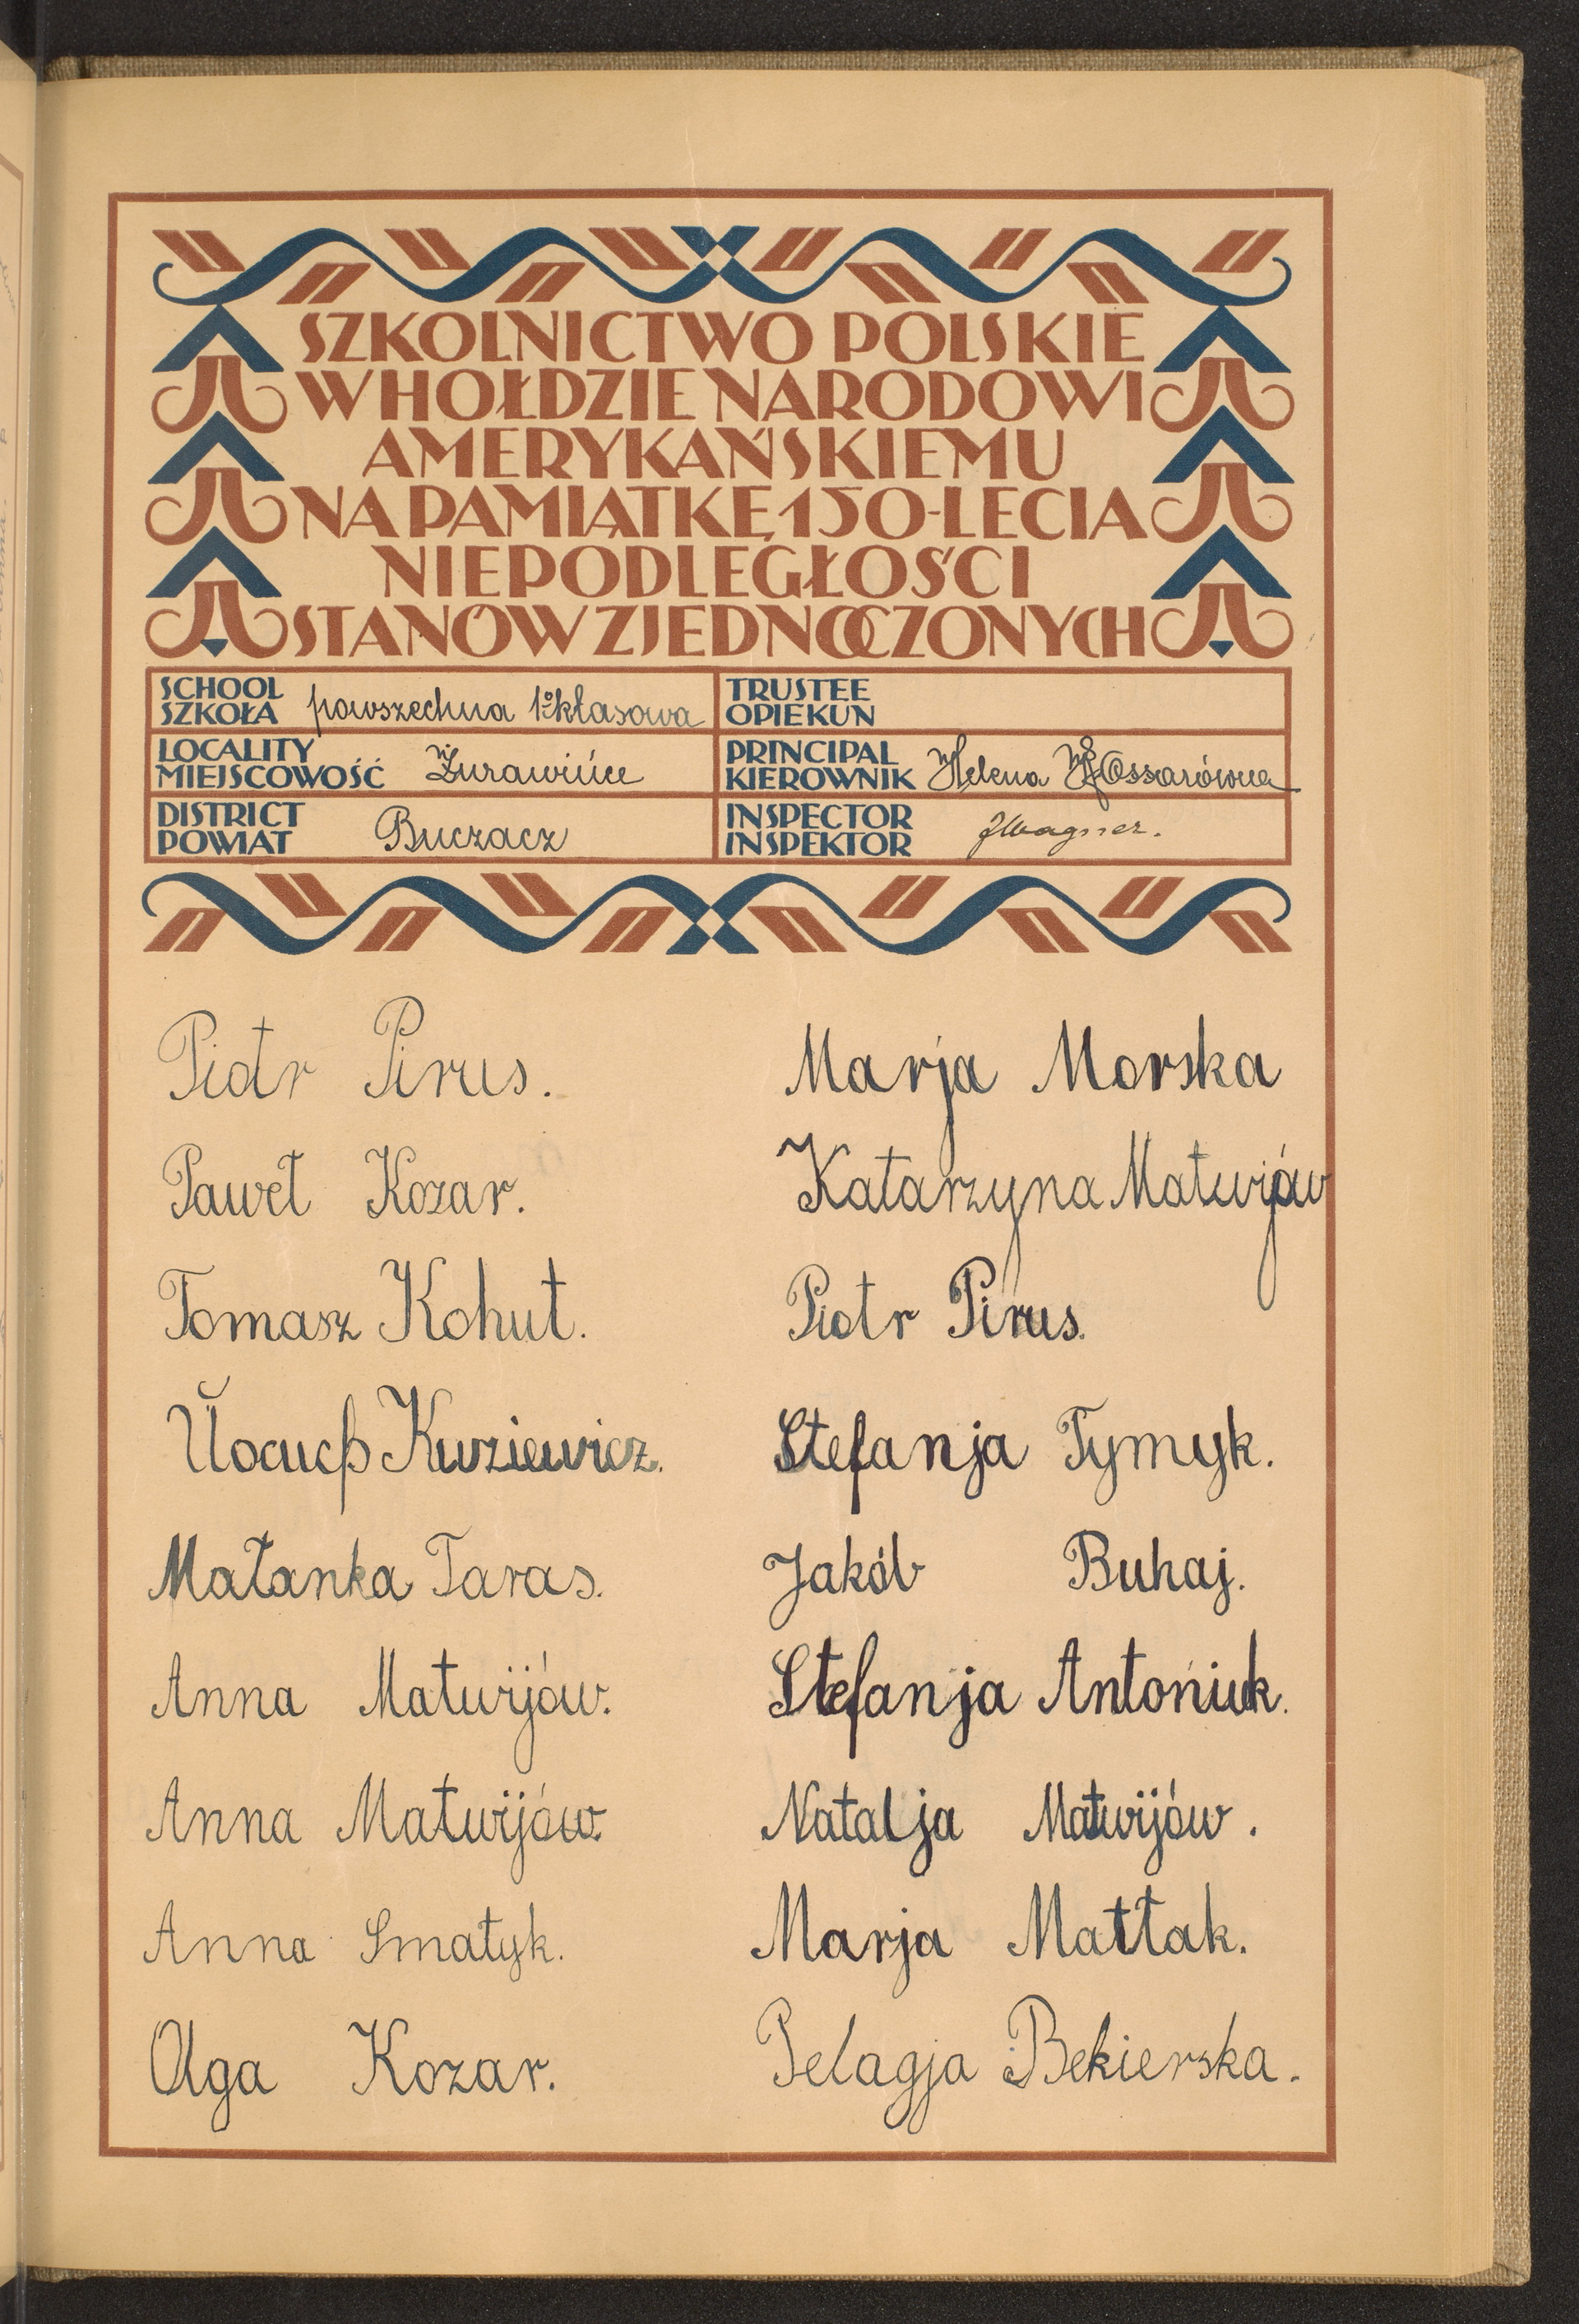 SZKOLNICTWO POLSKIE
W HOŁDZIE NARODOWI
AMERYKAŃSKIEMU
NA PAMIĄTKĘ 150-LECIA
NIEPODLEGŁOŚCI
STANÓW ZJEDNOCZONYCH
SCHOOL
SZKOŁA powszechna 1o klasowa
TRUSTEE
OPIEKUN
LOCALITY
MIEJSCOWOŚĆ Żurawińce
PRINCIPAL
KIEROWNIK Helena
DISTRICT
POWIAT Buczacz
INSPECTOR
INSPEKTOR JWagner.
Piotr Pirus.
Paweł Kozar.
Tomasz Kohut.
Kurziewicz.
Małanka Taras.
Anna Matwijów.
Anna Matwijów.
Anna Smatyk.
Olga Kozar.
Marja Morska
Katarzyna Matwijów
Piotr Pirus.
Stefanja Tymyk.
Jakób Buhaj.
Stefanja Antoniuk.
Natalja Matwijów.
Marja Matłak.
Pelagja Bekierska.